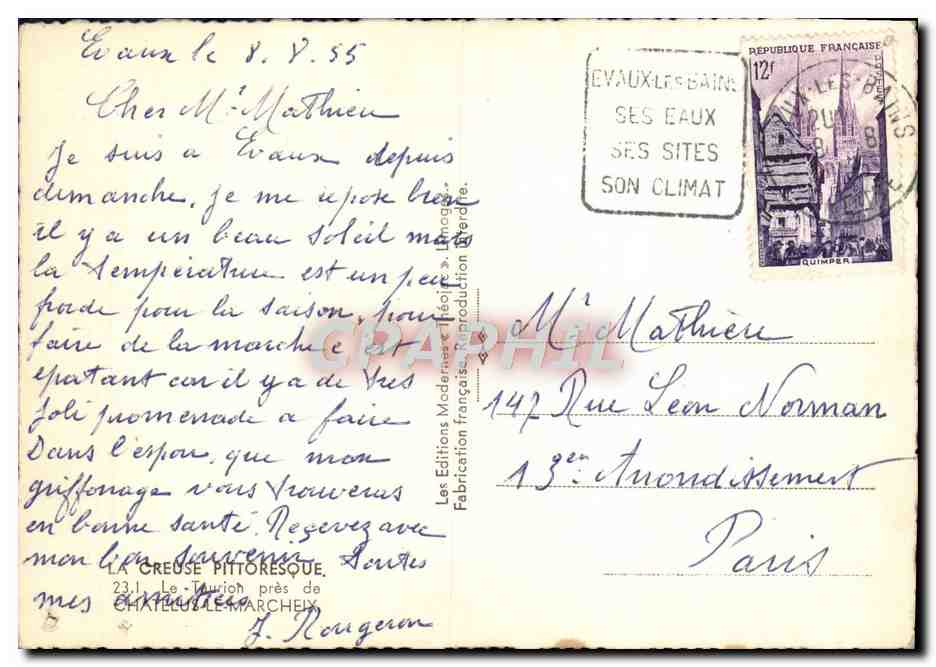 Evaux le 8.8.55
Cher Mr Mathieu
Je suis a Evaux depuis
demanche, je me repose bien
il y a un beau soleil mais
la température est un peu
froide pour la saison, pour
faire de la marche c est
epatant car il y a de tres
joli promenade a faire
Dans l'espoir, que mon
griffonage vous trouveras
en bonne santé. Recevez avec
mon bon souvenir toutes
mes amitiées
J. Rougeron
LA CREUSE PITTORESQUE.
23.1. Le Taurion près de
CHATELUS-LE-MARCHEIX
Les Editions Modernes « Théojac ». Limoges.
Fabrication française. Reproduction interdite.
CPAPHIL
EVAUX-LES-BAINS
SES EAUX
SES SITES
SON CLIMAT
RÉPUBLIQUE FRANÇAISE
12f
POSTES
QUIMPER
EVAUX-LES-BAINS
8
CREUSE
Mr Mathière
147 Rue Léon Norman
13 gen Arrondissement
Paris